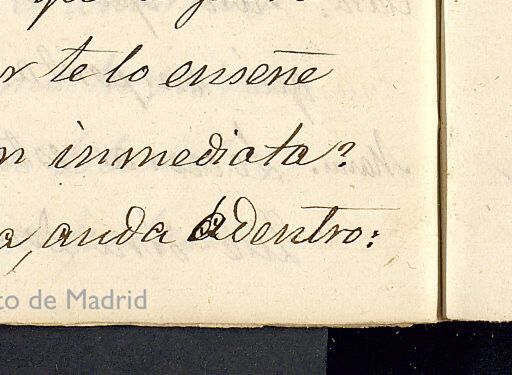 r te lo enseñe
n inmediata?
a, anda adentro:
to de Madrid